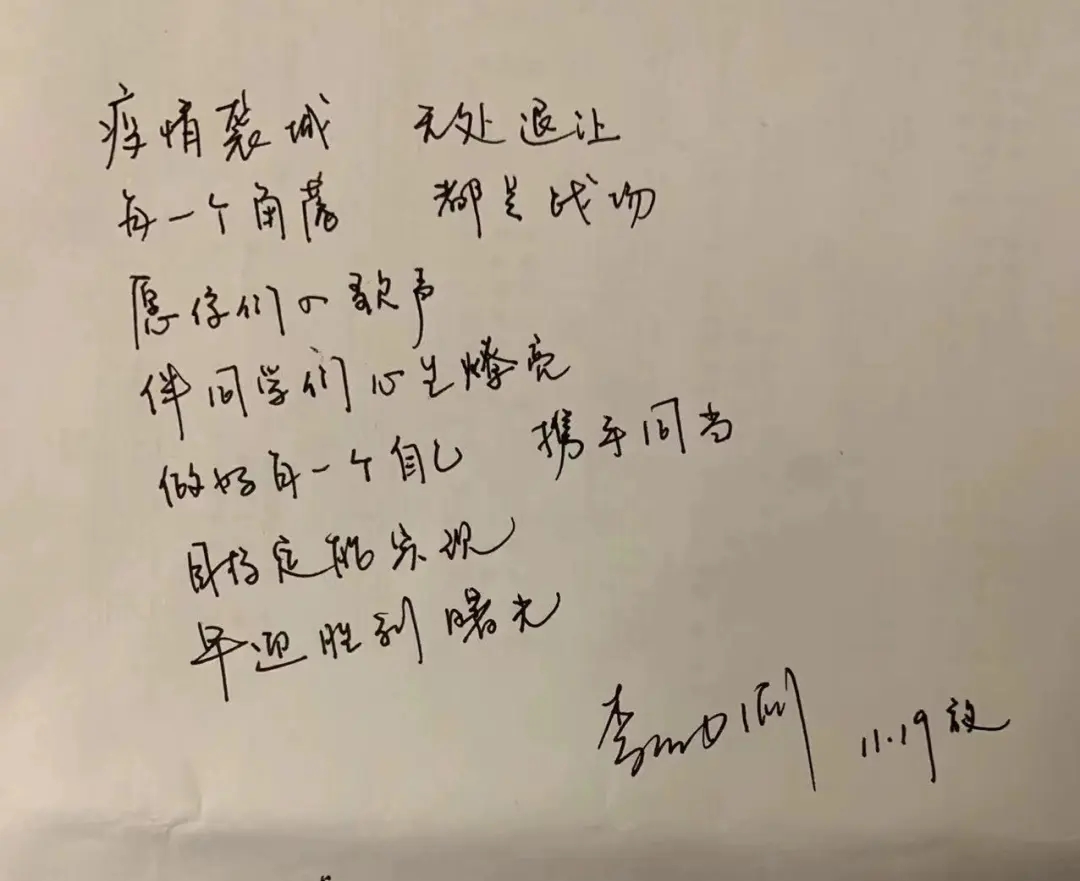 疫情袭城 无处退让
每一个角落 都是战场
愿你们的歌声
伴同学们心生嘹亮
做好每一个自己 携手同当
目标定能实现
早迎胜利曙光
李 11.19